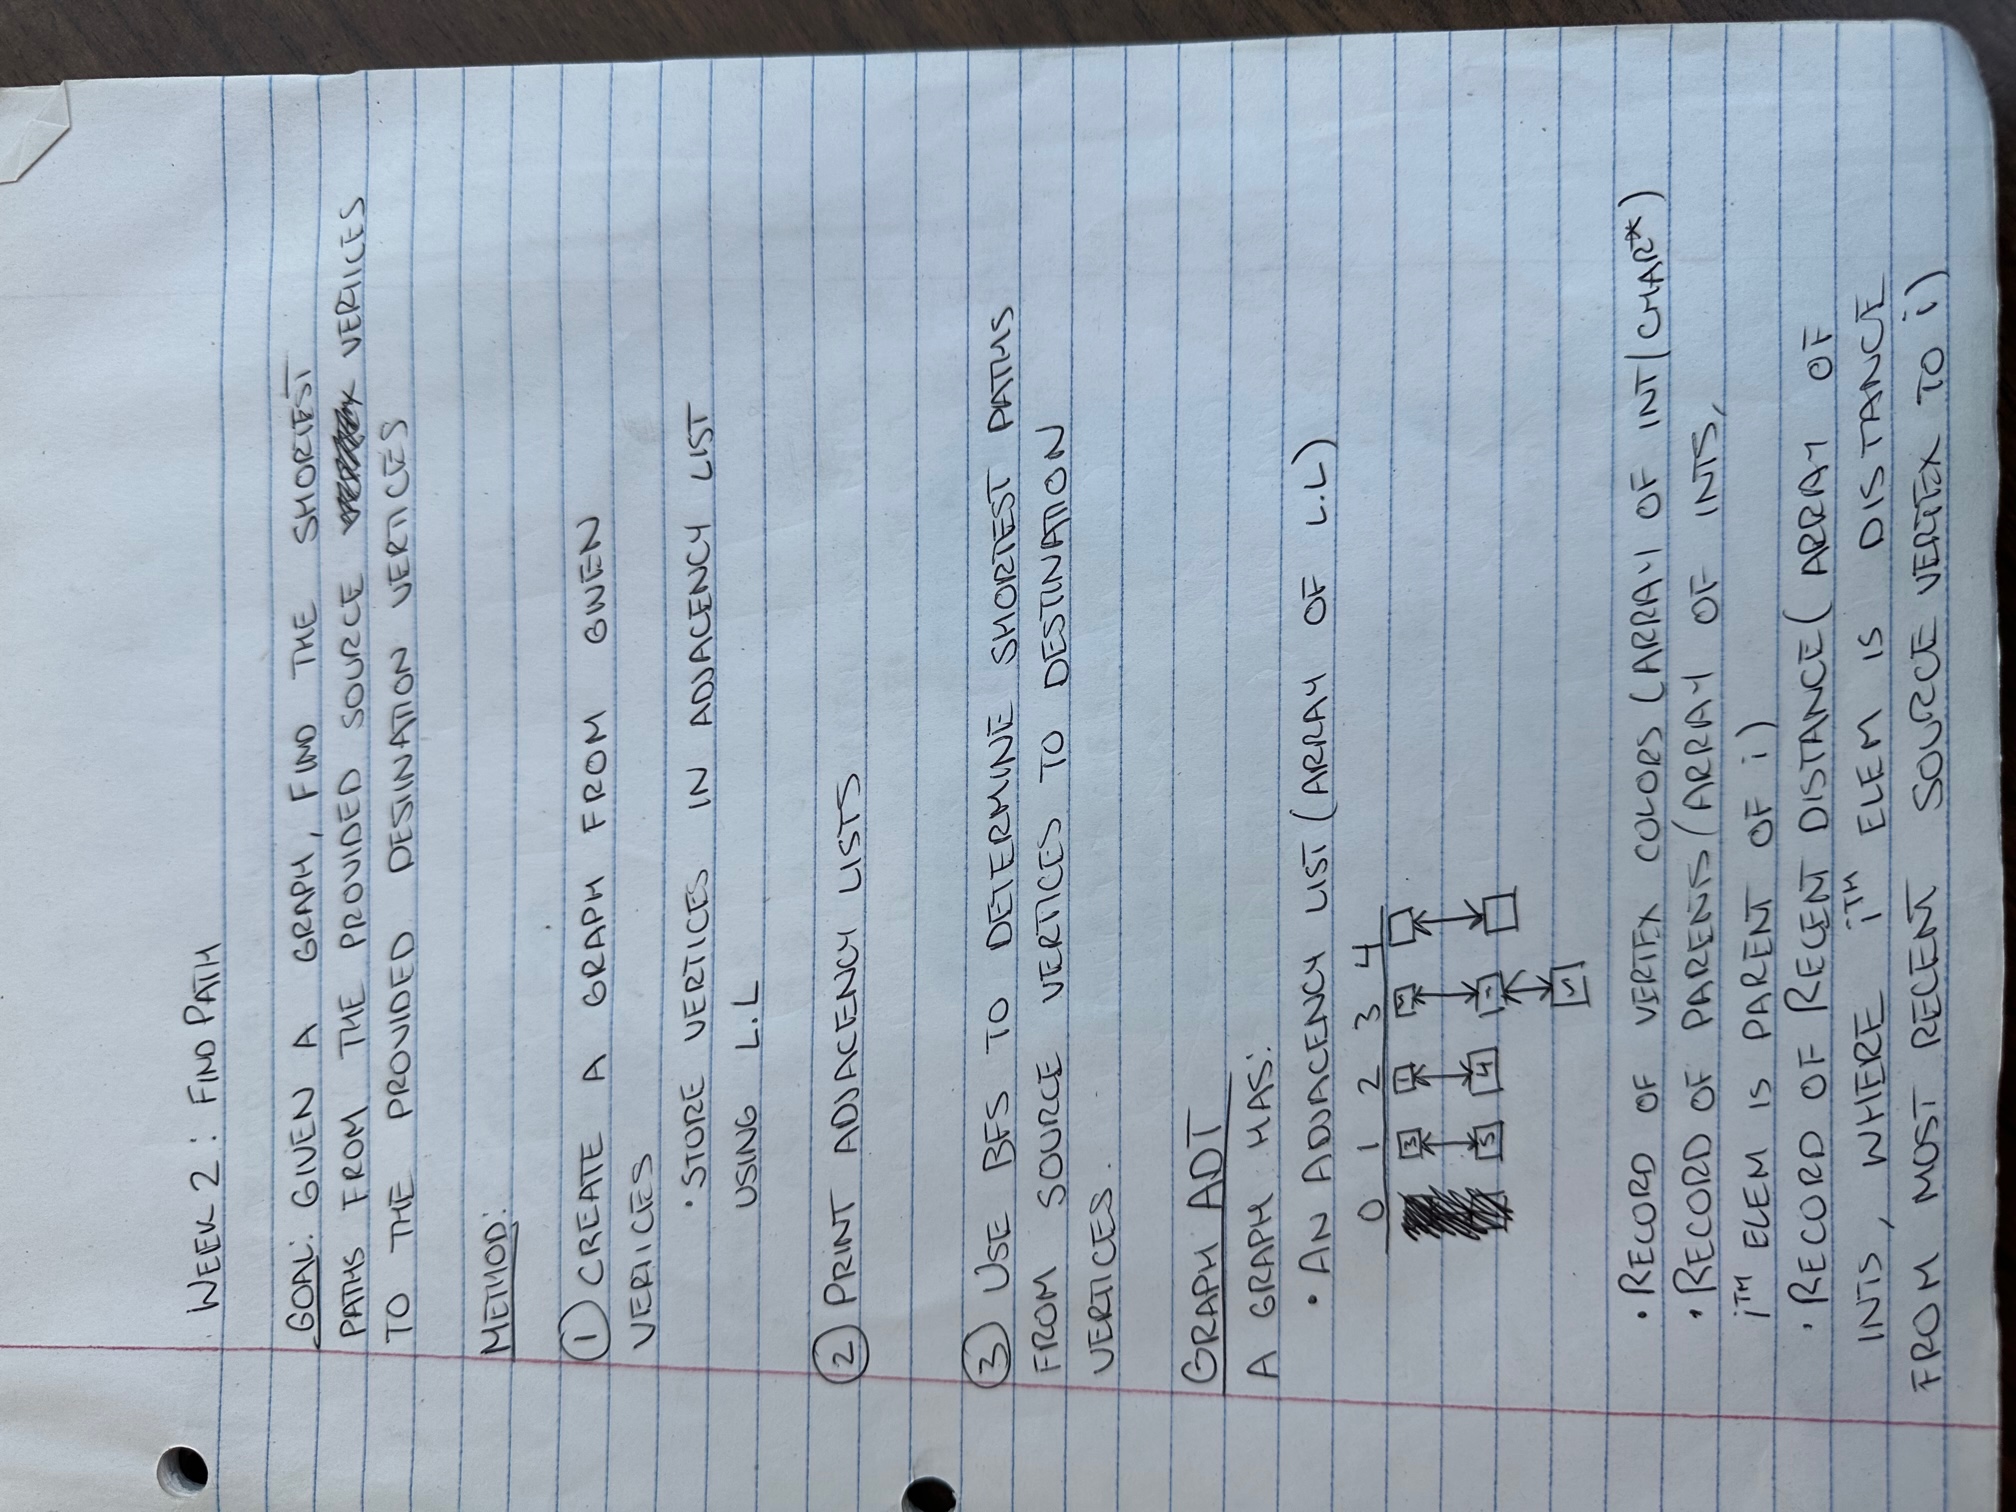 WEEK 2: FIND PATH
GOAL: GIVEN A GRAPH, FIND THE SHORTEST
PATHS FROM THE PROVIDED SOURCE VERTICES
TO THE PROVIDED DESTINATION VERTICES
METHOD:
① CREATE A GRAPH FROM GIVEN
VERTICES
• STORE VERTICES IN ADJACENCY LIST
USING L.L
② PRINT ADJACENCY LISTS
③ USE BFS TO DETERMINE SHORTEST PATHS
FROM SOURCE VERTICES TO DESTINATION
VERTICES.
GRAPH ADT
A GRAPH HAS:
• AN ADJACENCY LIST (ARRAY OF L.L)
0 1 2 3 4
3 1
5 4
• RECORD OF VERTEX COLORS (ARRAY OF INT/CHAR*)
• RECORD OF PARENTS (ARRAY OF INTS,
iTH ELEM IS PARENT OF i)
• RECORD OF RECENT DISTANCE (ARRAY OF
INTS, WHERE iTH ELEM IS DISTANCE
FROM MOST RECENT SOURCE VERTEX TO i)